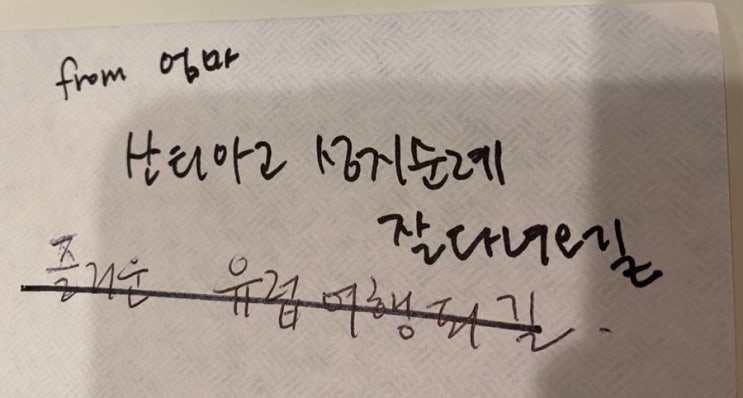 from 엄마
산티아고 성지순례
잘다녀오길
즐거운 유럽 여행 되길.